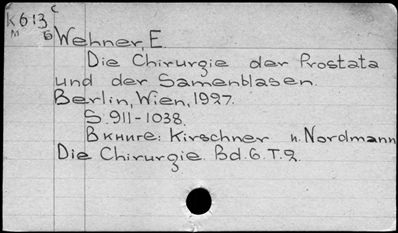 к613 с
м Б
Wehner, E.
Die Chirurgie der Prostata
und der Samenblasen.
Berlin, Wien, 1927.
S. 911-1038.
Вкниге: Kirschner u. Nordmann
Die Chirurgie. Bd. 6. T. 2.